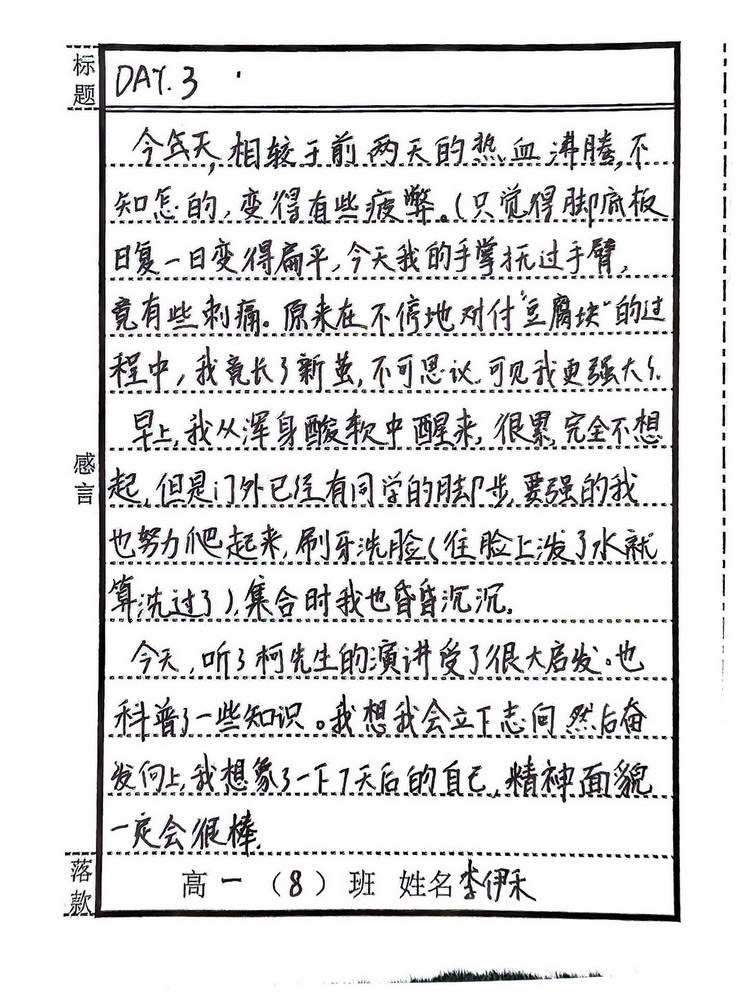 标题
DAY.3
今天,相较于前两天的热血沸腾,不
知怎的,变得有些疲弊。(只觉得脚底板
日复一日变得扁平,今天我的手掌抚过手臂,
竟有些刺痛。原来在不停地对付“豆腐块”的过
程中,我竟长了新茧,不可思议.可见我更强大了.
早上,我从浑身酸软中醒来,很累,完全不想
感言
起,但是门外已经有同学的脚步,要强的我
也努力爬起来,刷牙洗脸(往脸上泼了水就
算洗过了),集合时我也昏昏沉沉.
今天,听了柯先生的演讲受了很大启发。也
科普了一些知识。我想我会立下志向 然后奋
发向上,我想象了一下7天后的自己,精神面貌
一定会很棒.
落款
高一(8)班 姓名李伊禾